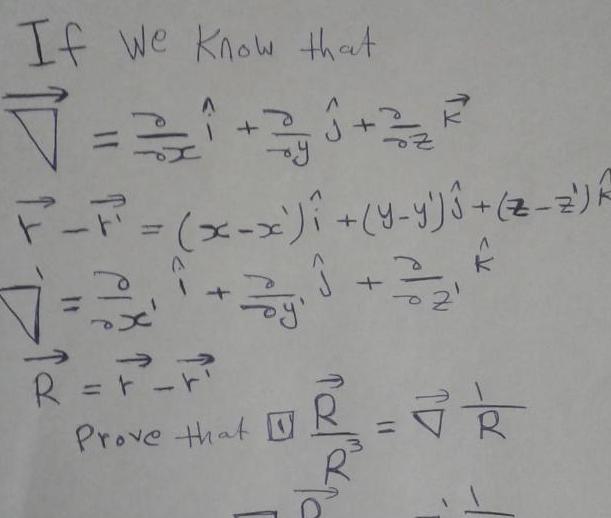 If we know that
$\vec{\nabla} = \frac{\partial}{\partial x} \hat{i} + \frac{\partial}{\partial y} \hat{j} + \frac{\partial}{\partial z} \vec{k}$
$\vec{r} - \vec{r}' = (x - x')\hat{i} + (y - y')\hat{j} + (z - z')\hat{k}$
$\nabla' = \frac{\partial}{\partial x'} \hat{i} + \frac{\partial}{\partial y'} \hat{j} + \frac{\partial}{\partial z'} \hat{k}$
$\vec{R} = \vec{r} - \vec{r}'$
Prove that [1] $\frac{\vec{R}}{R^3} = \vec{\nabla} \frac{1}{R}$